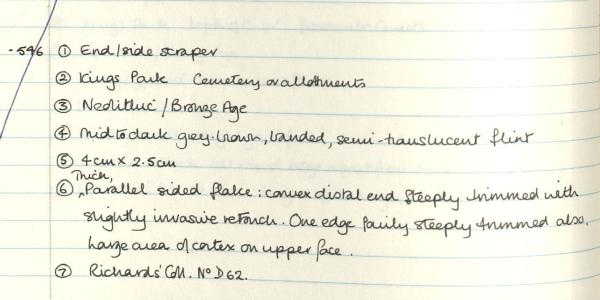 -546 ① End/side scraper
② Kings Park Cemetery or allotments
③ Neolithic/Bronze Age
④ Mid to dark grey-brown, banded, semi-translucent flint
⑤ 4cm x 2.5cm
Thick,
⑥ Parallel sided flake: convex distal end steeply trimmed with
slightly invasive retouch. One edge fairly steeply trimmed also.
Large area of cortex on upper face.
⑦ Richards' Coll. No D62.